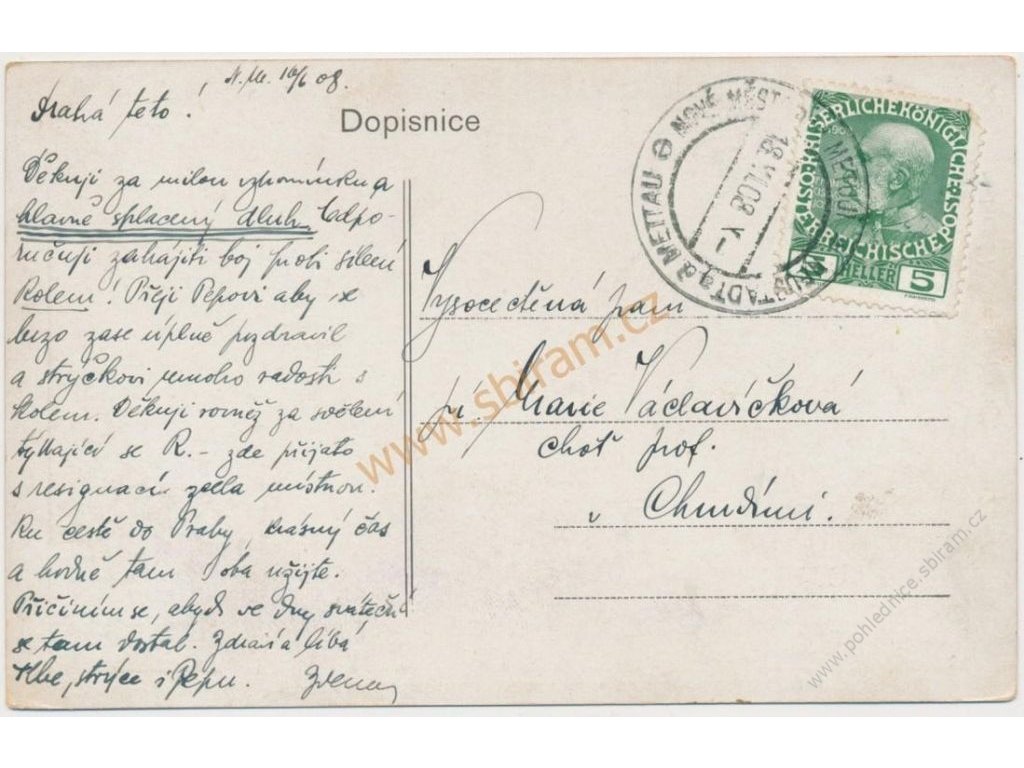 N. M. 16/6 08.
Drahá teto!
Dopisnice
Děkuji za milou vzpomínku a
hlavně splacený dluh. Odpo-
ručuji zahájiti boj proti
kolem! Přeji Pepovi aby se
brzo zase úplně pozdravil
a strýčkovi mnoho radosti s
kolem. Děkuji rovněž za sdělení
týkající se R. – zde přijato
s resignací zcela místnou.
Ku cestě do Prahy krásný čas
a hodně tam oba užijte.
Přičiním se, abych ve dny sváteční
se tam dostal. Zdraví a líbá
Tebe, strýce i Pepu. Zdena
Vysocectěná paní
pí. Marie Václavíčková
choť prof.
v Chrudimi.
NOVÉ MĚSTO
NEUSTADT a.d. METTAU
KAISERLICHEKÖNIGLICHE
ÖSTERREICHISCHEPOST
5 HELLER 5
www.sbiram.cz
www.pohlednice.sbiram.cz